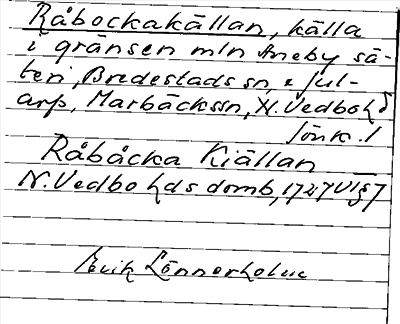 Råbockakällan, källa
i gränsen mln Aneby sä-
teri, Bredestads sn, & Jul-
arp, Marbäcks sn, N. Vedbo hd
Jönk. l
Råbåcka Kiällan
N. Vedbo hds domb, 1727 VI § 7
Erik Lönnerholm